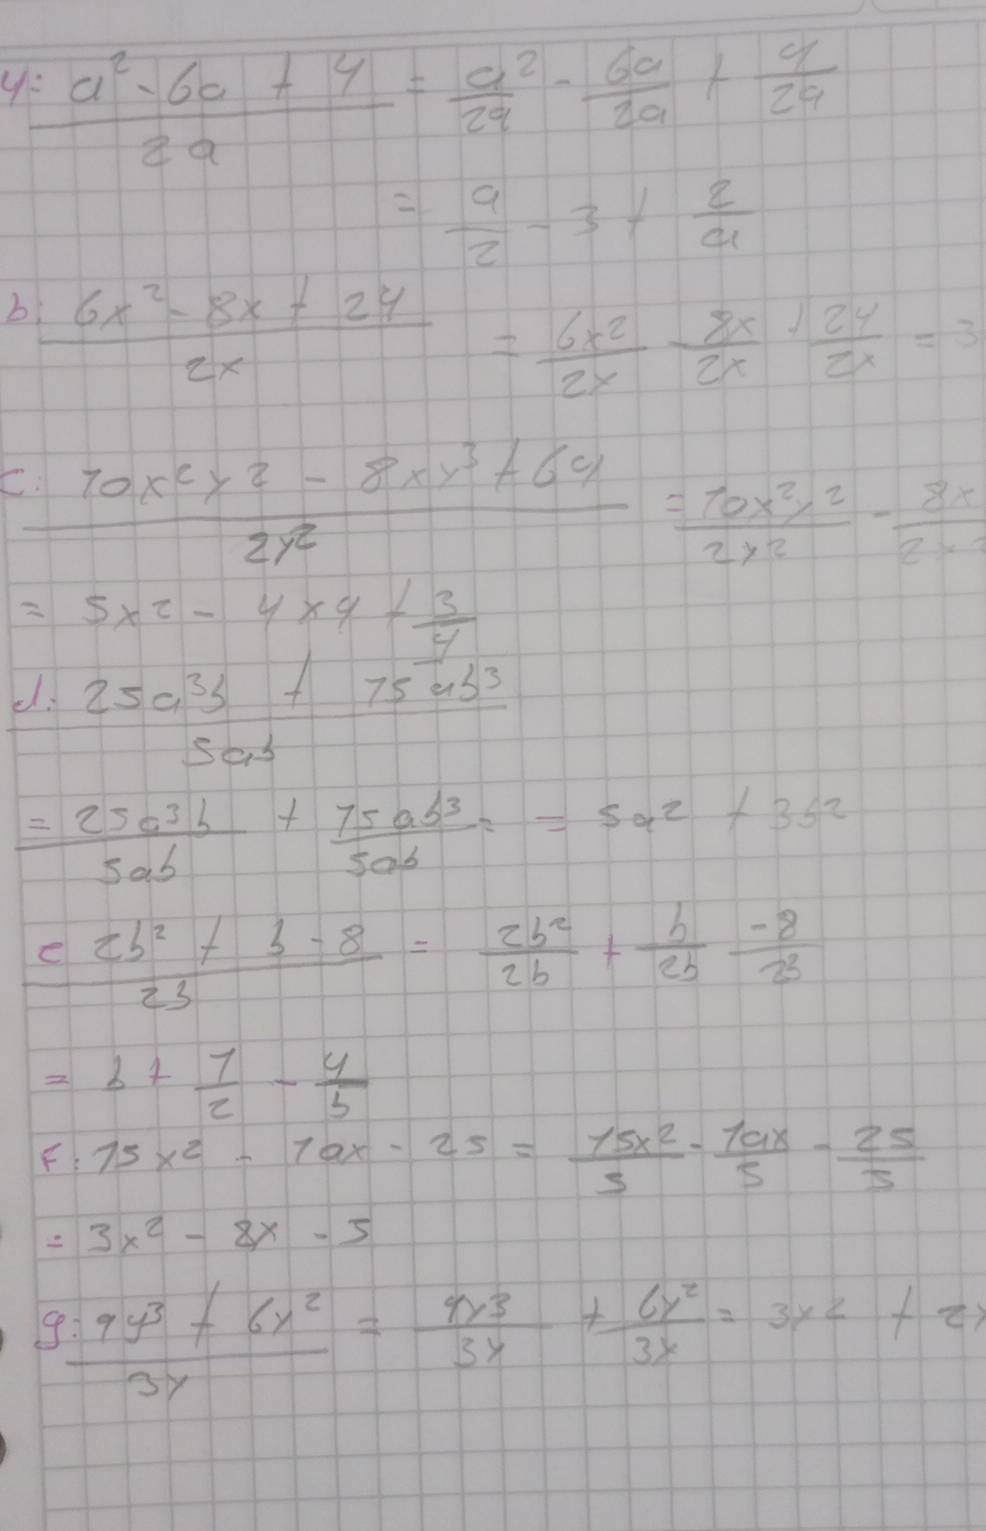 4: a² - 6a + 4 / 2a = a²/2a - 6a/2a + 4/2a
= a/2 - 3 + 2/a
b: 6x² - 8x + 24 / 2x = 6x²/2x - 8x/2x + 24/2x = 3
c: 10x²y² - 8xy³ + 6y / 2y² = 10x²y²/2y² - 8x
= 5x² - 4xy + 3/y
d: 25a³b + 15ab³ / 5ab
= 25a³b/5ab + 15ab³/5ab = = 5a² + 3b²
e 2b² + b - 8 / 2b = 2b²/2b + b/2b -8/2b
= b + 1/2 - 4/b
F: 15x² - 10x - 25 = 15x²/5 - 10x/5 - 25/5
= 3x² - 2x - 5
g: 9y³ + 6y² / 3y = 9y³/3y + 6y²/3y = 3y² + 2y